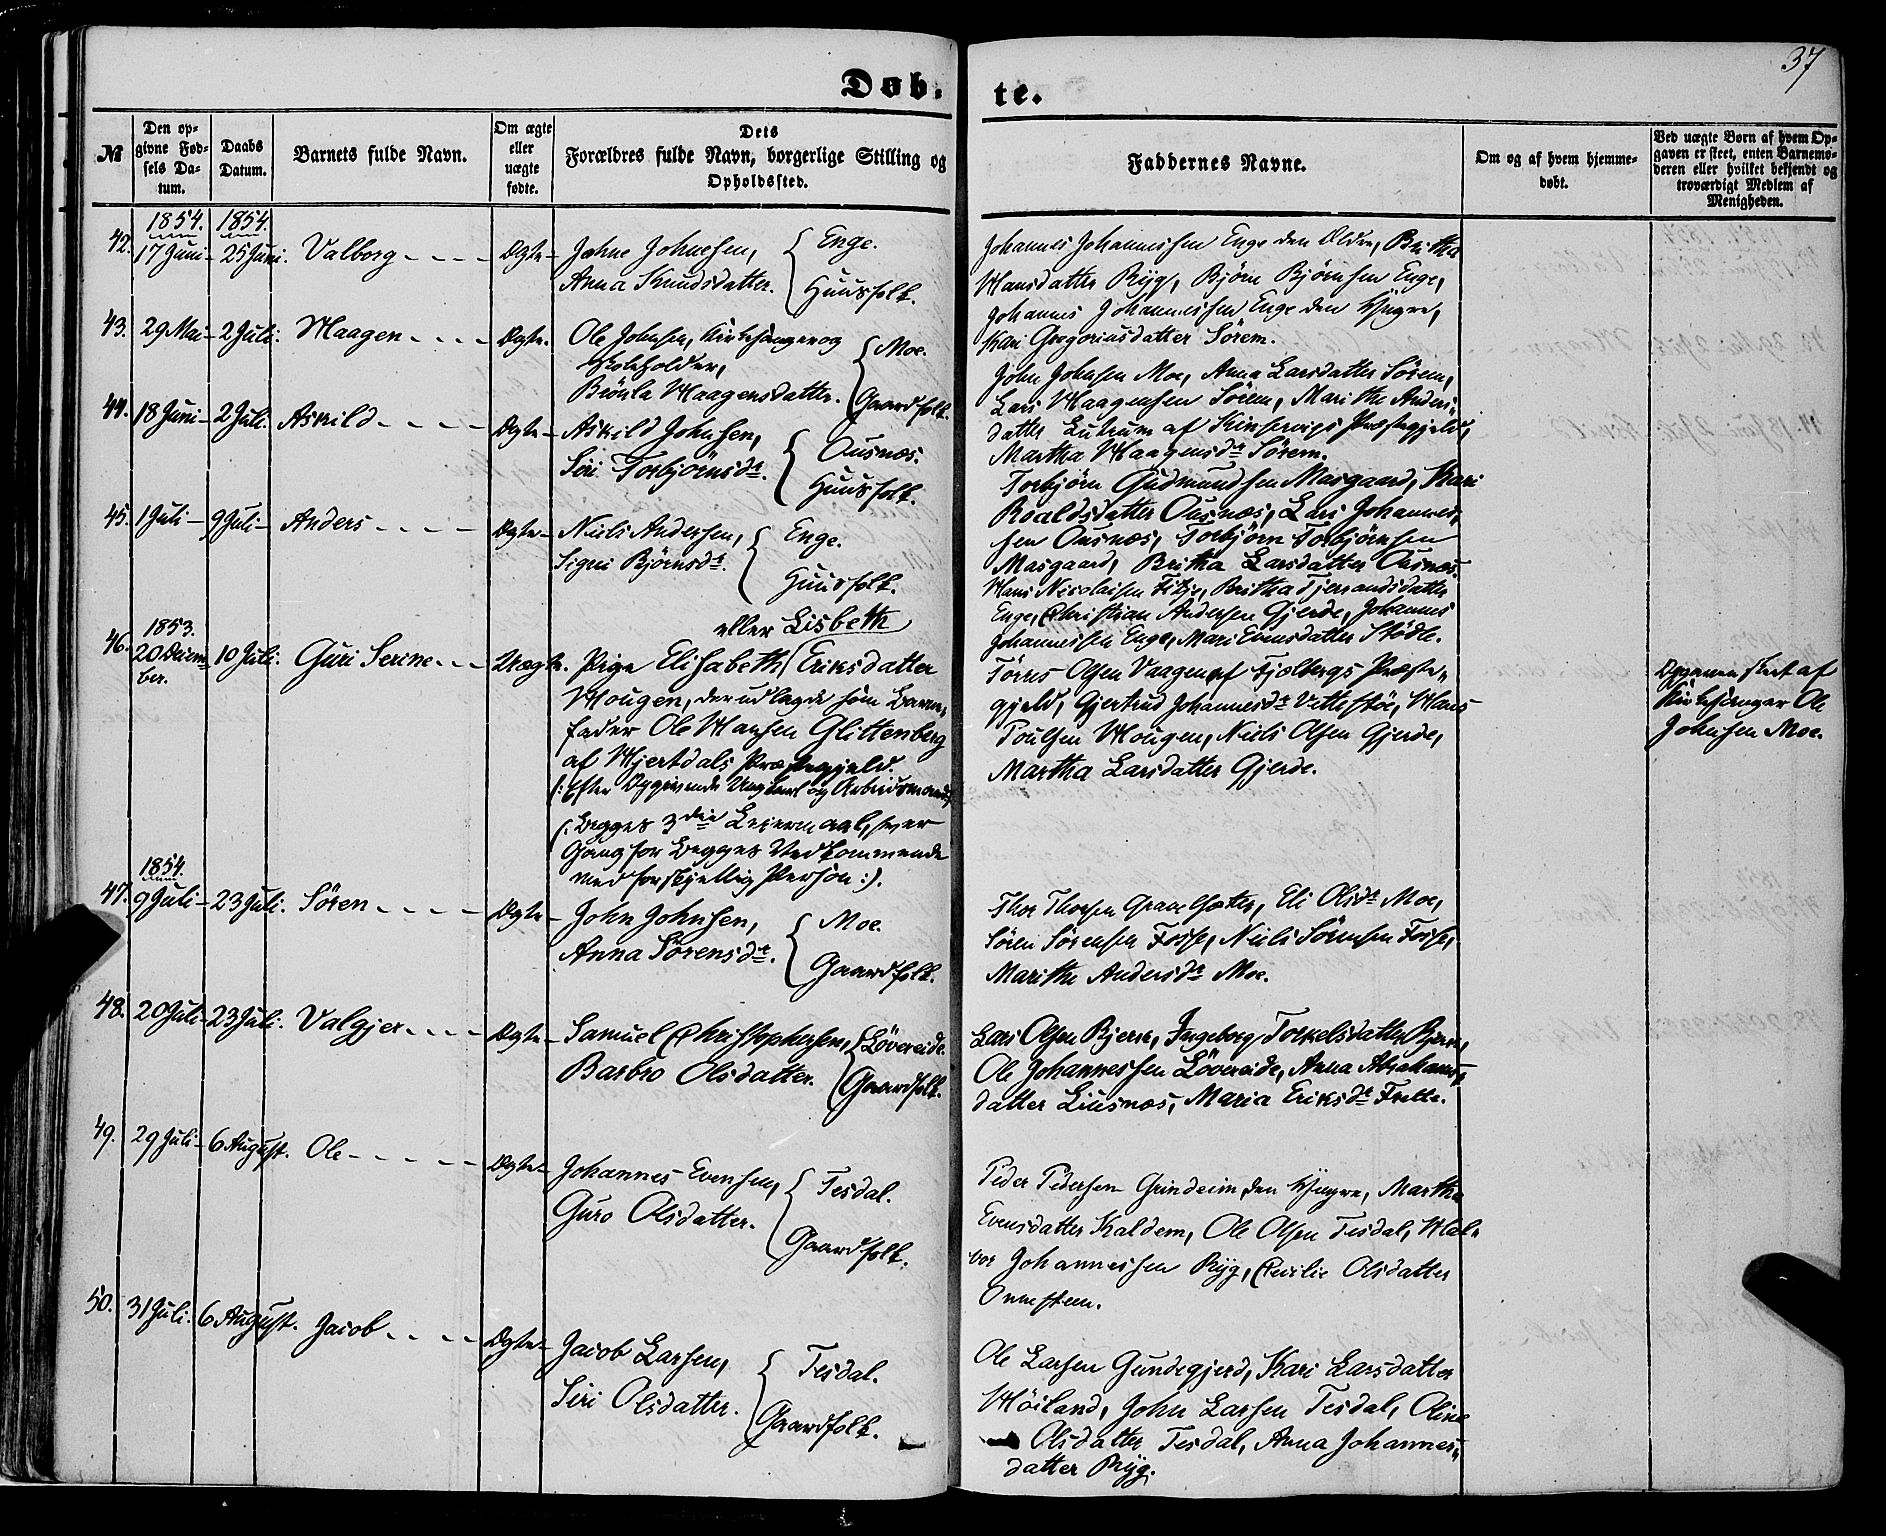 37
Døb-
te.
№
Den op-
givne Fød-
sels Da-
tum.
Daabs
Datum.
Barnets fulde Navn.
Om ægte
eller
uægte
fødte.
Dets
Forældres fulde Navn, borgerlige Stilling og
Opholdssted.
Faddernes Navne.
Om og af hvem hjemme-
døbt.
Ved uægte Børn af hvem Op-
gaven er skeet, enten Barnemo-
deren eller hvilket bekjendt og
troværdigt Medlem af
Menigheden.
1854. 1854.
42. 17 Juni- 25 Juni. Valborg Ægte- Johne Johnesen, Enge.
Anna Knudsdatter. Huusfolk.
Johannes Johannessen Enge den Ældre, Britha
Hansdatter Ryg, Bjørn Bjørnsen Enge,
Johannes Johannessen Enge den Yngre,
Kari Gregoriusdatter Sørem.
43. 29 Mai- 2 Juli. Haagen Ægte. Ole Johnsen, Kirkesanger og
Skoleholder, Moe.
Brønla Haagensdatter. Gaardfolk.
John Johnsen Moe, Anna Larsdatter Sørem,
Lars Haagensen Sørem, Marithe Anders-
datter Lutrum af Kinservigs Præstegjeld,
Martha Haagensdr Sørem.
44. 18 Juni- 2 Juli. Askild Ægte- Askild Johnsen, Ousnæs.
Siri Torbjørnsdr. Huusfolk.
Torbjørn Gudmundsen Masgaard, Kari
Roaldsdatter Ousnæs, Lars Johannes-
sen Ousnæs, Torbjørn Torbjørnsen
Masgaard, Britha Larsdatter Ousnæs.
45. 1 Juli- 9 Juli- Anders Ægte- Niels Andersen, Enge.
Signi Bjørnsdr. Huusfolk.
Hans Nicolaisen Fitje, Britha Tjerandsdatter
Enge, Christian Andersen Gjerde, Johannes
Johannessen Enge, Mari Evensdatter Stødle.
1853.
eller Lisbeth
46. 20 Decem- 10 Juli. Guri Serine Uægte. Pige Elisabeth Eriksdatter
ber.
Hougen, der udlagde som Barne-
fader Ole Hansen Glittenberg
af Hjertdals Præstegjeld.
(: Efter Opgivende Ungkarl og Arbeidsmand,
(: Begges 3die Leiermaal, hver
Gang for Begges Vedkommende
med forskjellig Person :).
Tørres Olsen Vaagen af Fjelbergs Præste-
gjeld, Gjertrud Johannesdr Vetlestøe, Hans
Poulsen Hougen, Niels Olsen Gjerde,
Martha Larsdatter Gjerde.
Opgaven skeet af
Kirkesanger Ole
Johnsen Moe.
1854.
47. 9 Juli- 23 Juli. Sören Ægte- John Johnsen, Moe.
Anna Sørensdr. Gaardfolk.
Thor Thorsen Gravelsæter, Eli Olsdr Moe,
Søren Sørensen Fosse, Niels Sørensen Fosse,
Marithe Andersdr Moe.
48. 20 Juli- 23 Juli. Valgjer Ægte- Samuel Christophersen, Løvereide.
Barbro Olsdatter. Gaardfolk.
Lars Olsen Bjerke, Ingeborg Torkelsdatter Bjerke,
Ole Johannessen Løvereide, Anna Abrahams-
datter Liusnæs, Maria Eriksdr Frette.
49. 29 Juli- 6 August. Ole Ægte- Johannes Evensen, Tesdal.
Guro Olsdatter. Gaardfolk.
Peder Pedersen Grindeim den Yngre, Martha
Evensdatter Kaldem, Ole Olsen Tesdal, Hal-
vor Johannessen Ryg, Cecilie Olsdatter
Onnesteen.
50. 31 Juli. 6 August. Jacob Ægte- Jacob Larsen, Tesdal.
Siri Olsdatter. Gaardfolk.
Ole Larsen Gundegjerd, Kari Larsdatter
Høiland, John Larsen Tesdal, Oline
Olsdatter Tesdal, Anna Johannes-
datter Ryg.